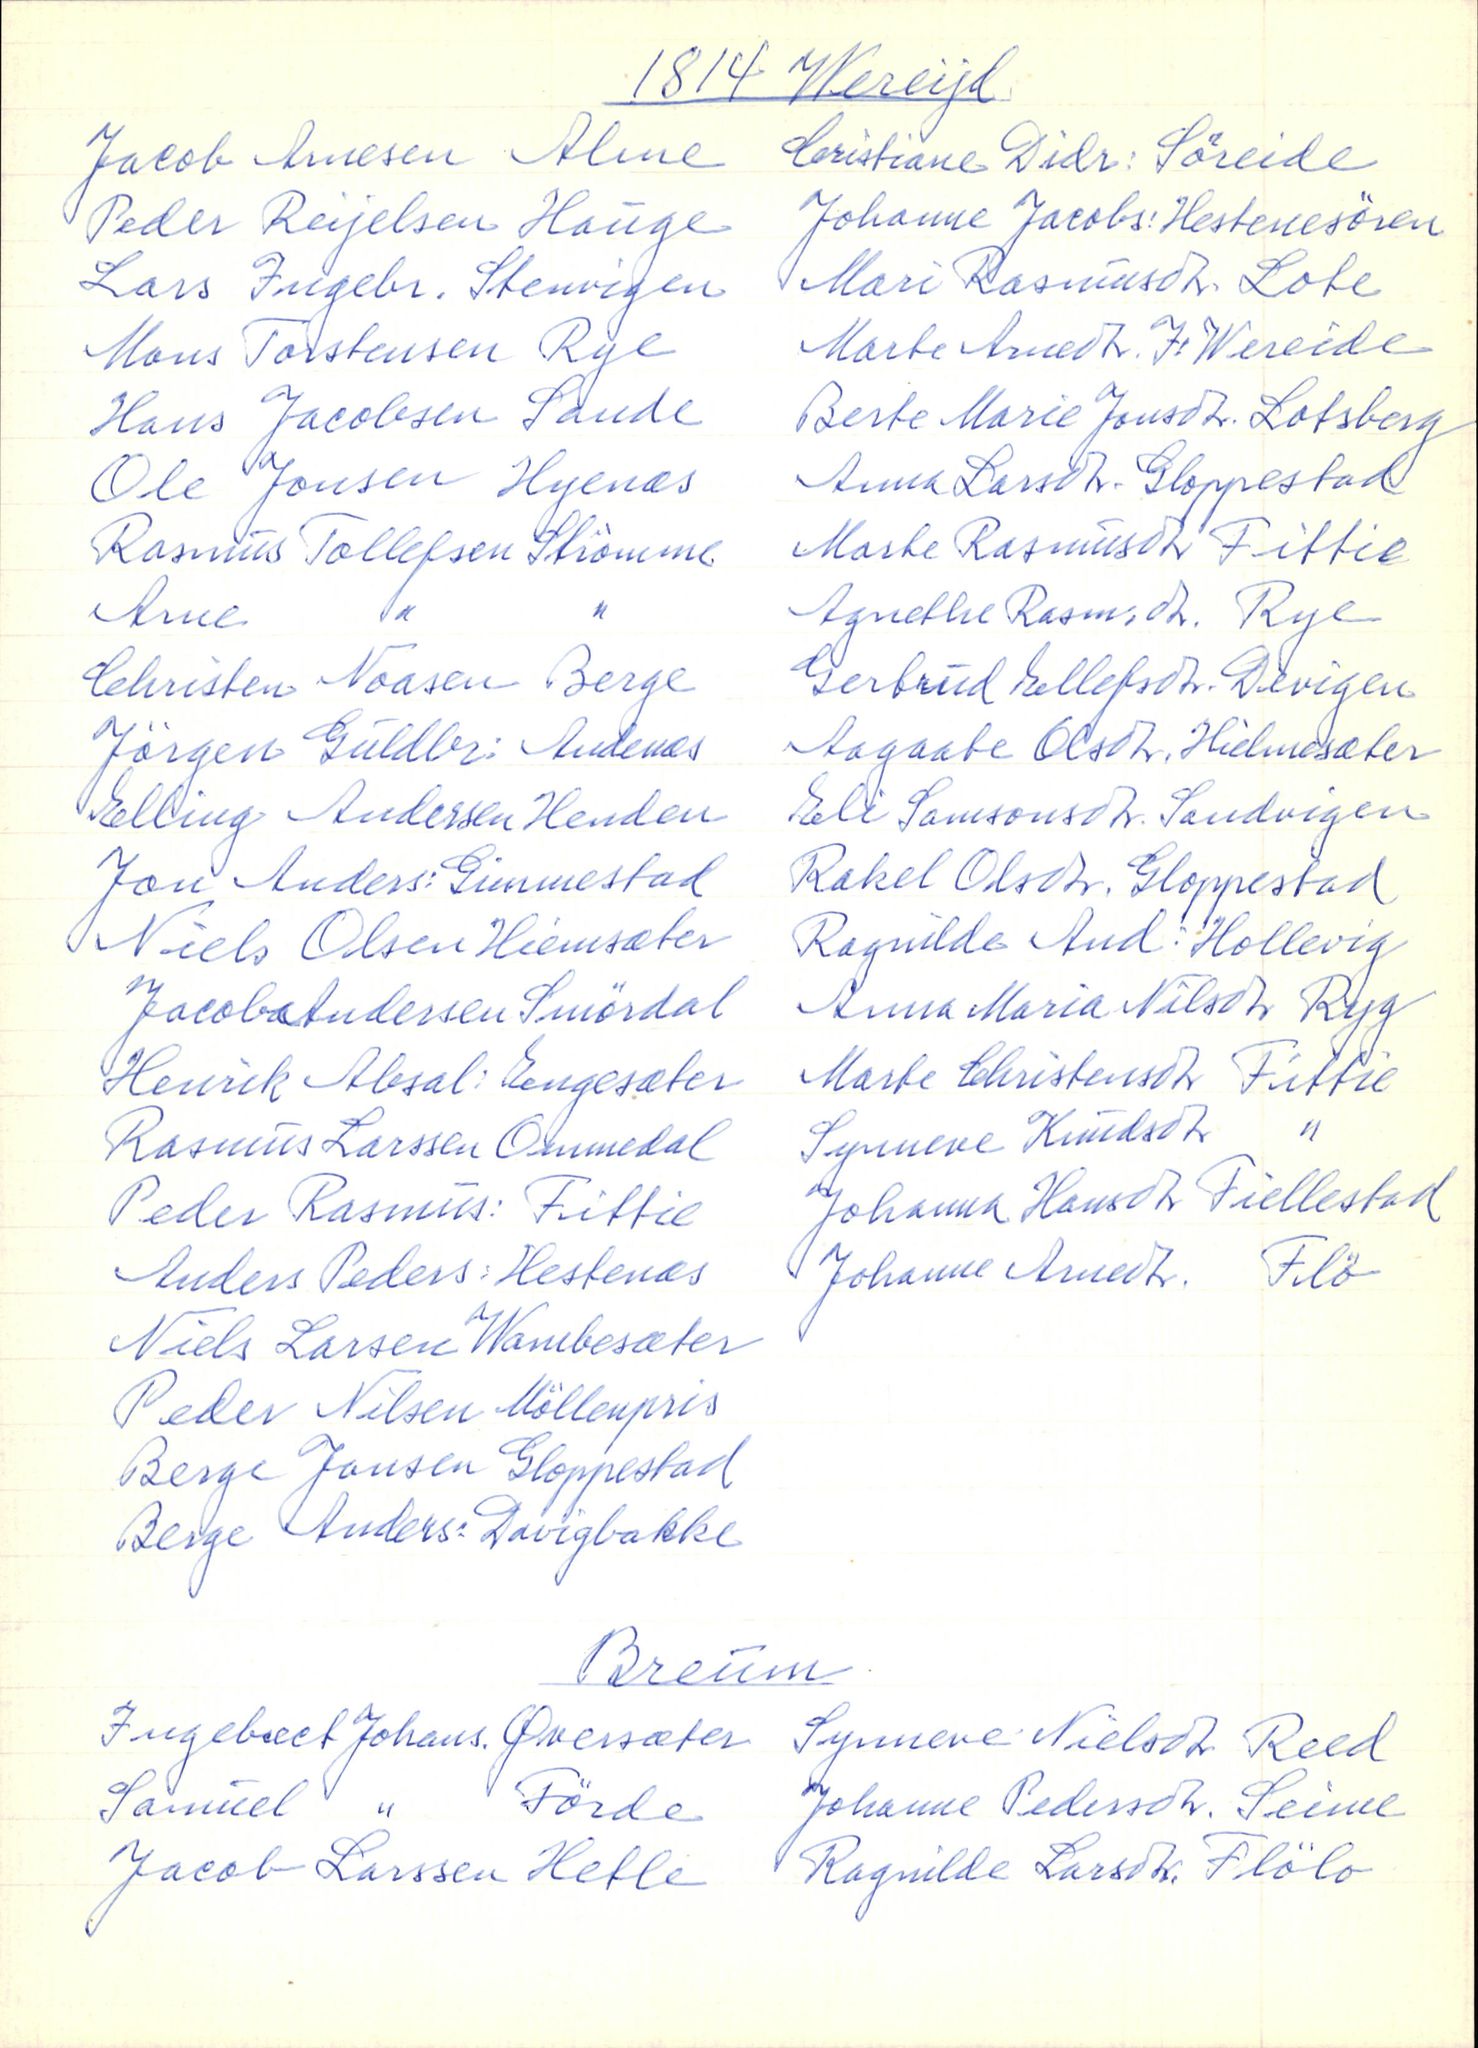 1814 Wereijd
Jacob Arnesen Alme
Peder Reijelsen Hauge
Lars Ingebr. Stenvigen
Mons Torstensen Rye
Hans Jacobsen Sande
Ole Jonsen Hyenæs
Rasmus Tollefsen Strömme
Arne " "
Christen Noasen Berge
Jörgen Guldbr: Andenæs
Elling Andersen Henden
Jon Anders: Gimmestad
Niels Olsen Hiemsæter
Jacob Andersen Smördal
Henrik Absal: Engesæter
Rasmus Larssen Ommedal
Peder Rasmus: Fittie
Anders Peders: Hestenæs
Niels Larsen Wambesæter
Peder Nilsen Möllenpris
Berge Jonsen Gloppestad
Berge Anders: Davigbakke
Cristiane Didr: Söreide
Johanne Jacobs: Hestenesören
Mari Rasmusdtr. Lote
Marte Arnedtr. I: Wereide
Berte Marie Jonsdtr. Lotsberg
Anna Larsdtr. Gloppestad
Marte Rasmusdtr Fittie
Agnethe Rasm.dtr. Rye
Gertrud Ellefsdtr. Devigen
Aagaate Olsdtr. Hielmesæter
Eli Samsonsdtr. Sandvigen
Rakel Olsdtr. Gloppestad
Ragnilde And: Hollevig
Anna Maria Nilsdtr Ryg
Marte Christensdtr Fittie
Synneve Knudsdtr "
Johanna Hansdtr Fiellestad
Johanne Arnedtr. Flö
Breum
Ingebrect Johans. Øversæter
Samuel " Förde
Jacob Larssen Hetle
Synneve Nielsdtr Reed
Johanne Pedersdtr. Seime
Ragnilde Larsdtr. Flölo